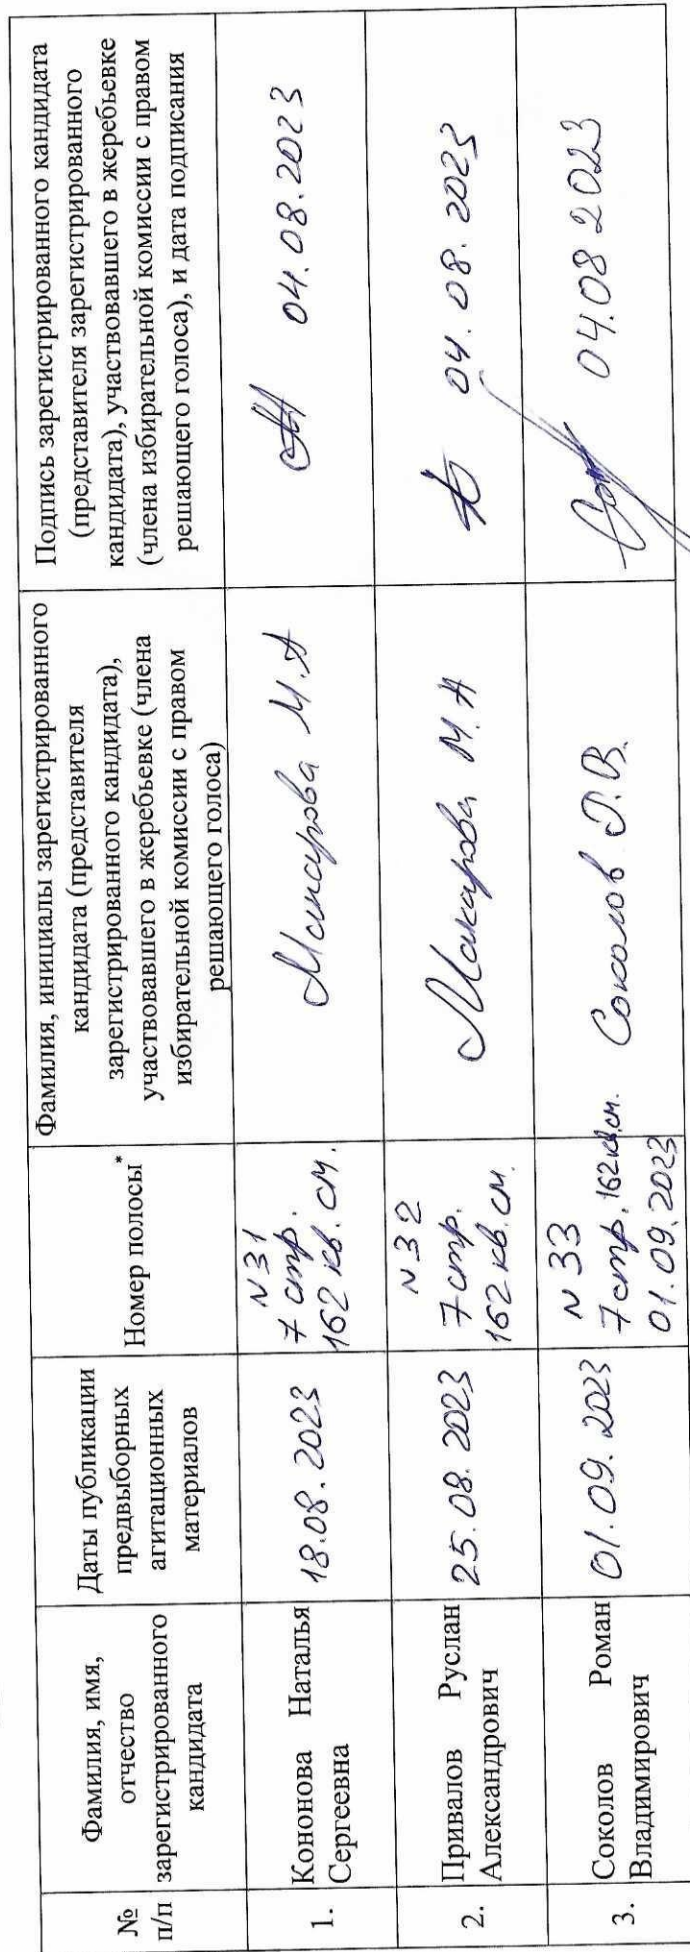 №
п/п
Фамилия, имя,
отчество
зарегистрированного
кандидата
Даты публикации
предвыборных
агитационных
материалов
Номер полосы*
Фамилия, инициалы зарегистрированного
кандидата (представителя
зарегистрированного кандидата),
участвовавшего в жеребьевке (члена
избирательной комиссии с правом
решающего голоса)
Подпись зарегистрированного кандидата
(представителя зарегистрированного
кандидата), участвовавшего в жеребьевке
(члена избирательной комиссии с правом
решающего голоса), и дата подписания
1.
Кононова Наталья
Сергеевна
18.08.2023
N 31
7 стр.
162 кв. см.
Макарова М.А
04.08.2023
2.
Привалов Руслан
Александрович
25.08.2023
N 32
7 стр.
162 кв. см.
Макарова М.А
04.08.2023
3.
Соколов Роман
Владимирович
01.09.2023
N 33
7 стр. 162 кв. см.
01.09.2023
Соколов Р.В.
04.08 2023